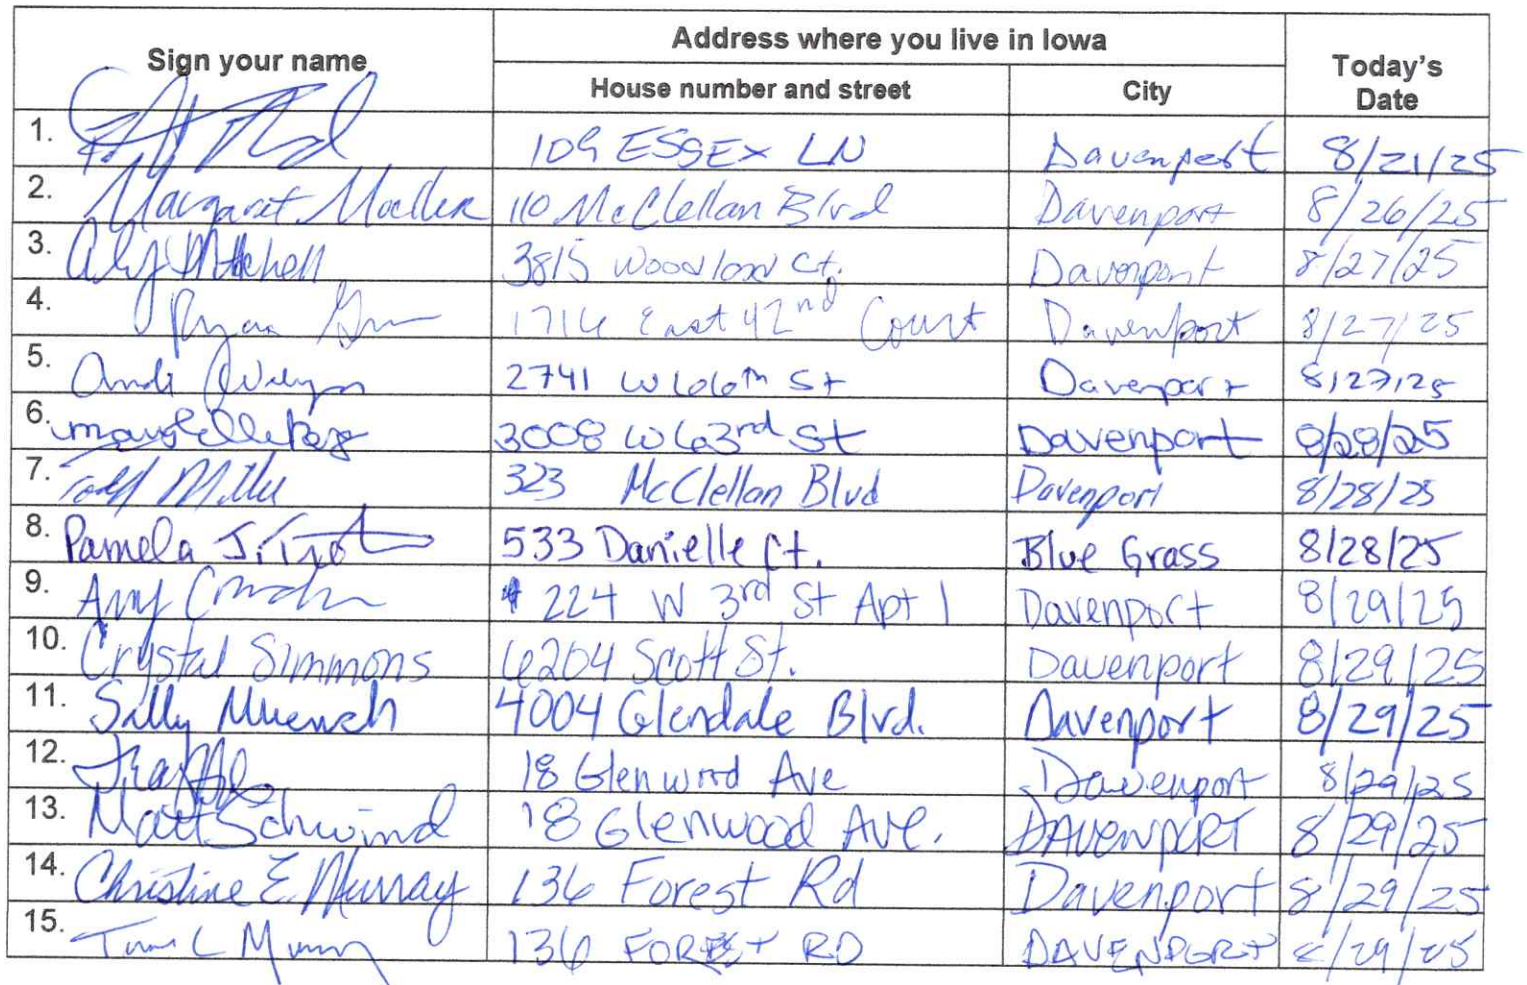 Sign your name
Address where you live in Iowa
House number and street City
Today's Date
1. 109 ESSEX LN Davenport 8/21/25
2. Margaret Moeller 110 McClellan Blvd Davenport 8/26/25
3. Mitchell 3815 Woodland Ct. Davenport 8/27/25
4. Ryan 1716 East 42nd Court Davenport 8/27/25
5. Andi 2741 W 66th St Davenport 8/27/25
6. 3008 W 63rd St Davenport 8/28/25
7. Todd Miller 323 McClellan Blvd Davenport 8/28/25
8. Pamela J. 533 Danielle Ct. Blue Grass 8/28/25
9. Amy 224 W 3rd St Apt 1 Davenport 8/29/25
10. Crystal Simmons 6204 Scott St. Davenport 8/29/25
11. Sally Muench 4004 Glendale Blvd. Davenport 8/29/25
12. 18 Glenwood Ave Davenport 8/29/25
13. Matt Schwind 18 Glenwood Ave. DAVENPORT 8/29/25
14. Christine E Murray 136 Forest Rd Davenport 8/29/25
15. 136 FOREST RD DAVENPORT 8/29/25